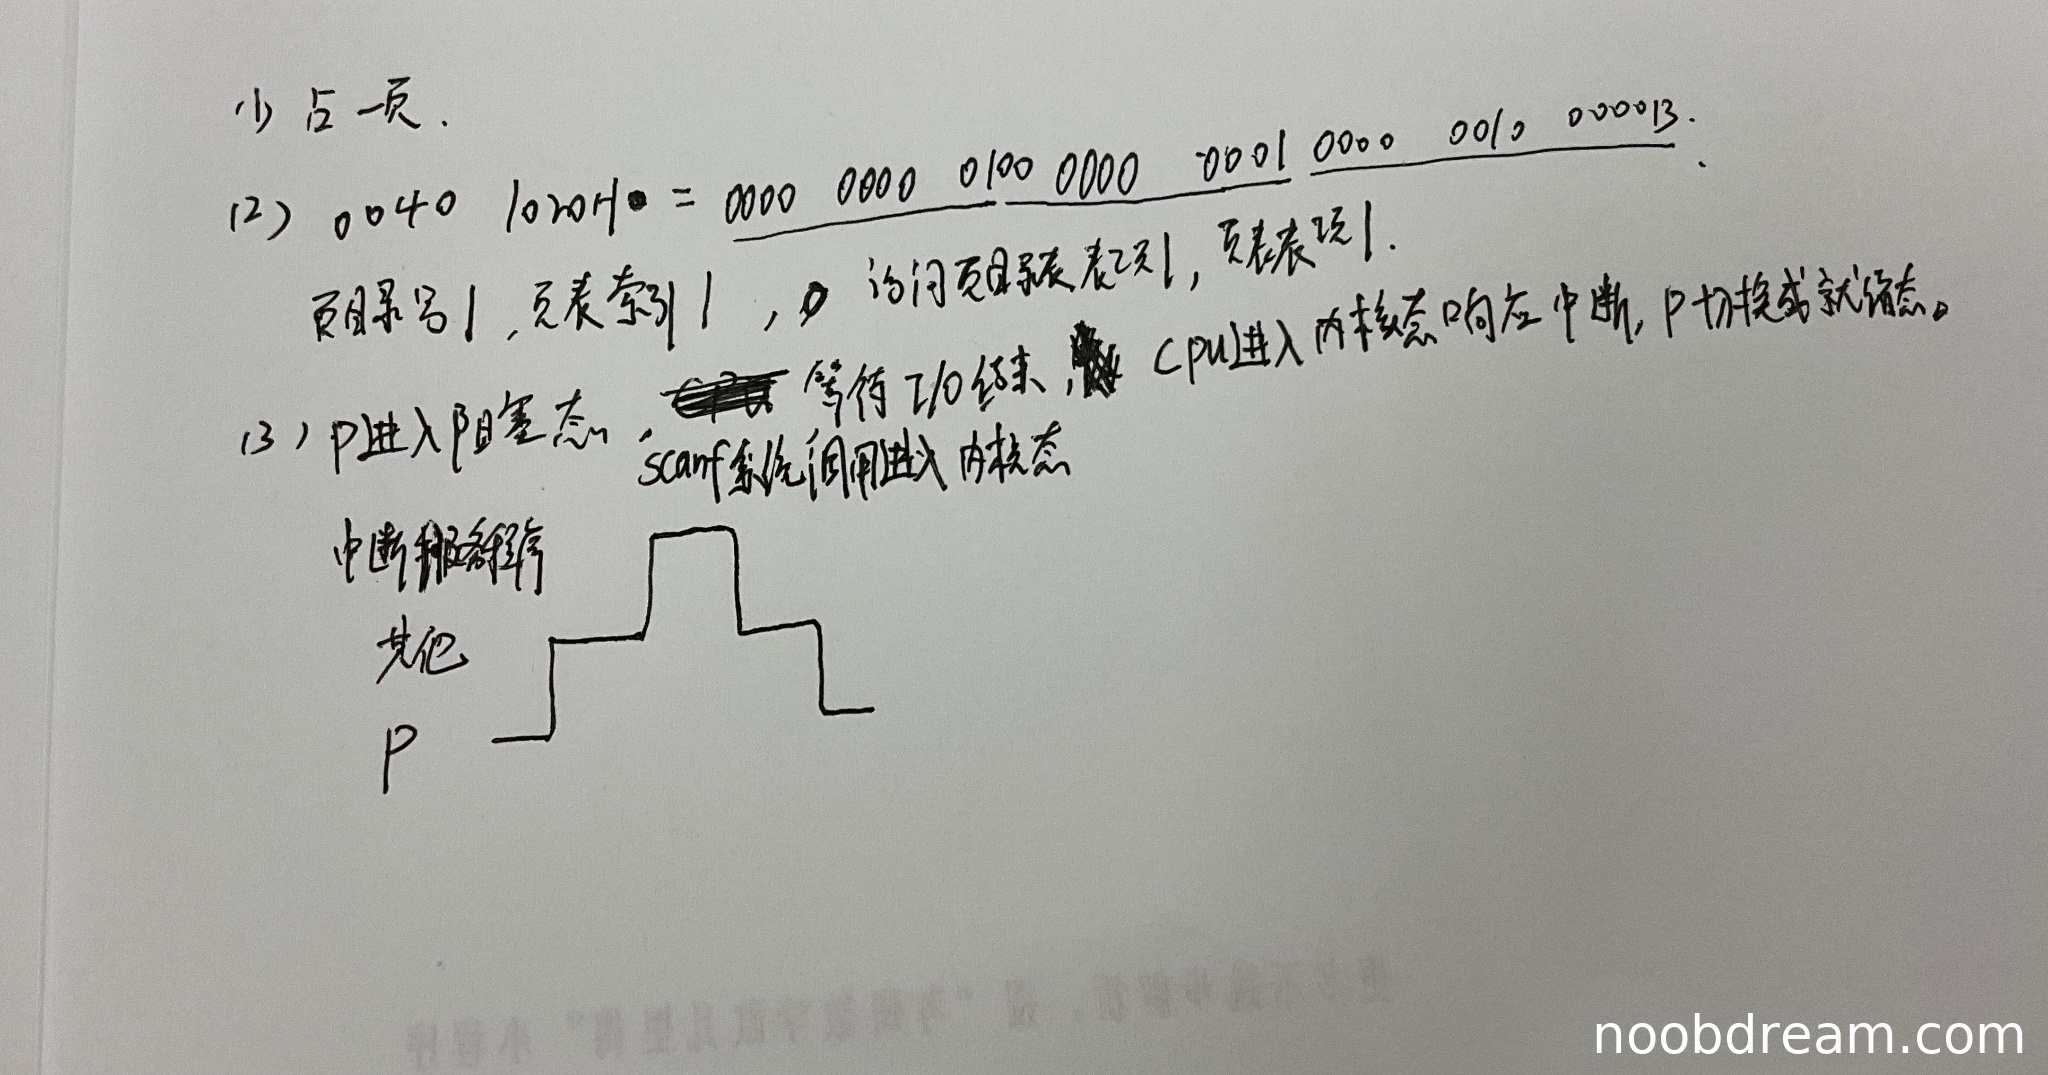 (1) 占一页.
(2) 0040 1020H = 0000 0000 0100 0000 0001 0000 0010 0000B.
页目录号1,页表索引1, 访问页目录表表项1,页表表项1.
(3) P进入阻塞态, 等待I/O结束, CPU进入内核态响应中断, P切换成就绪态。
scanf系统调用进入内核态
中断服务程序
其他
P
noobdream.com